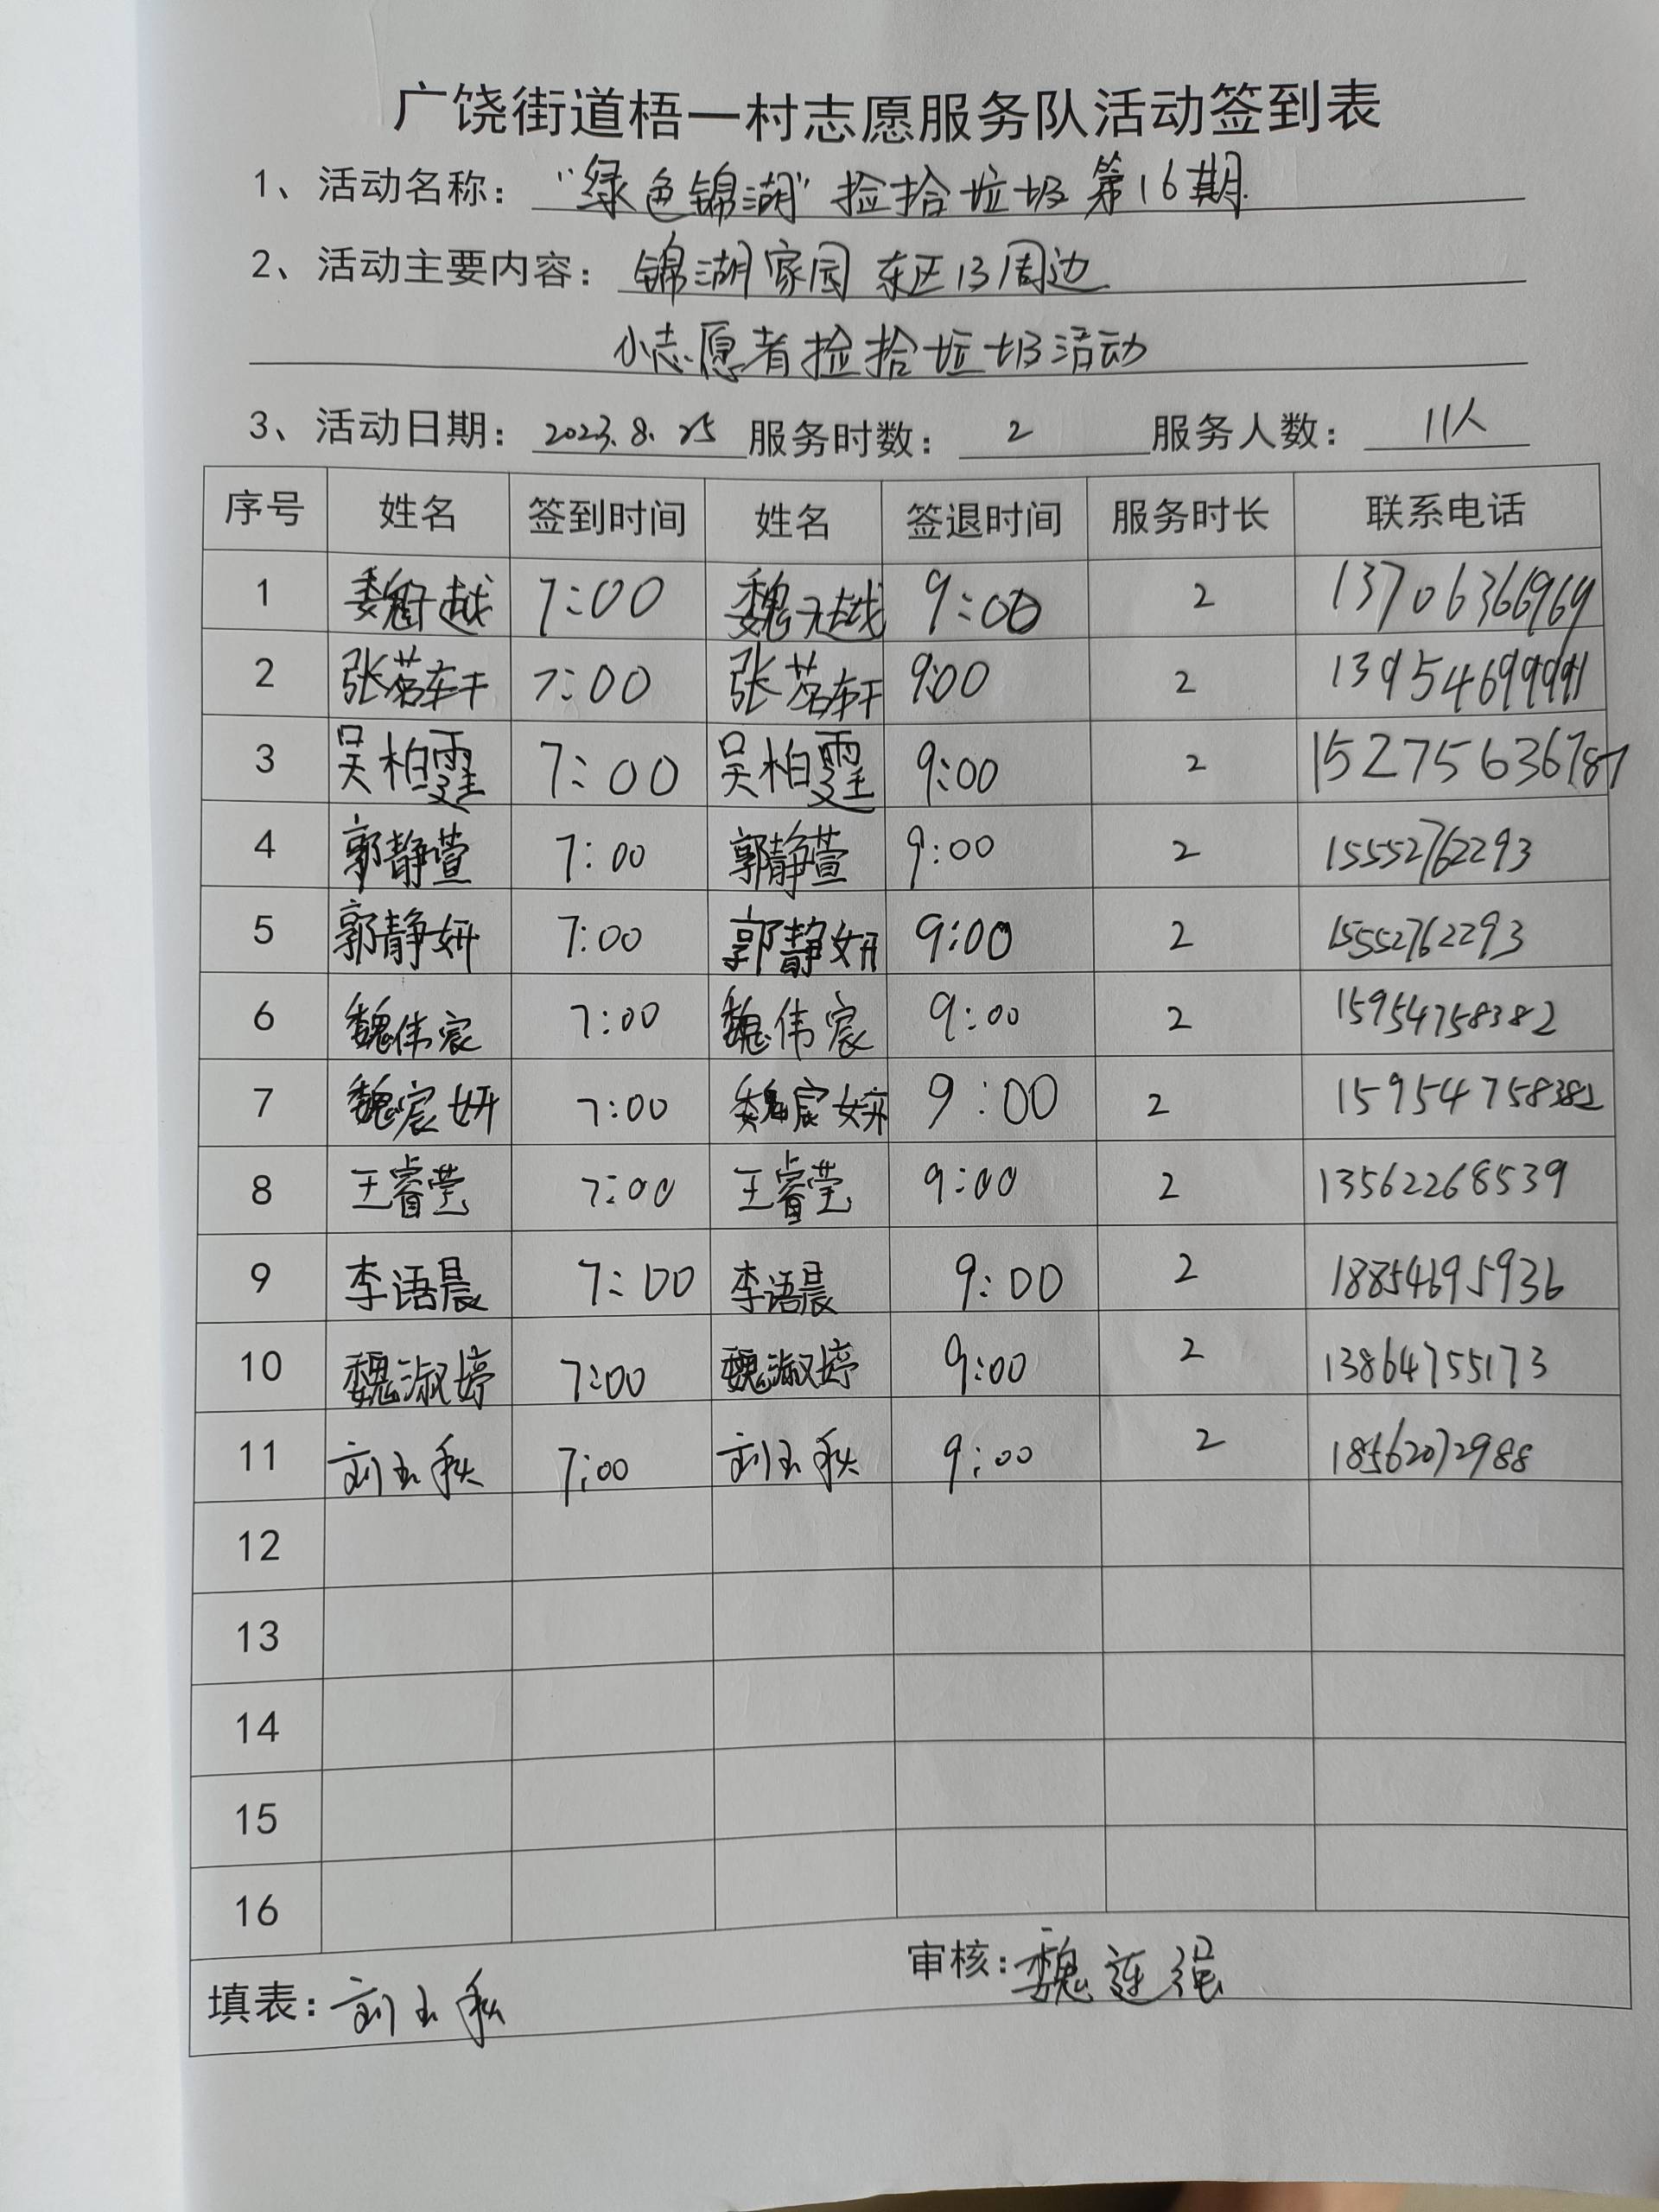 广饶街道梧一村志愿服务队活动签到表
1、活动名称：“绿色锦湖”捡拾垃圾第16期.
2、活动主要内容：锦湖家园东区13周边
小志愿者捡拾垃圾活动
3、活动日期：2023.8.25 服务时数：2 服务人数：11人
序号 姓名 签到时间 姓名 签退时间 服务时长 联系电话
1 魏子越 7:00 魏子越 9:00 2 13706366969
2 张茗轩 7:00 张茗轩 9:00 2 13954699991
3 吴柏霆 7:00 吴柏霆 9:00 2 15275636787
4 郭静萱 7:00 郭静萱 9:00 2 15552762293
5 郭静妍 7:00 郭静妍 9:00 2 15552762293
6 魏伟宸 7:00 魏伟宸 9:00 2 15954758382
7 魏宸妍 7:00 魏宸妍 9:00 2 15954758382
8 王睿莹 7:00 王睿莹 9:00 2 13562268539
9 李语晨 7:00 李语晨 9:00 2 18854695936
10 魏淑婷 7:00 魏淑婷 9:00 2 13864755173
11 刘玉秋 7:00 刘玉秋 9:00 2 18562072988
12
13
14
15
16
填表：刘玉秋 审核：魏莲强